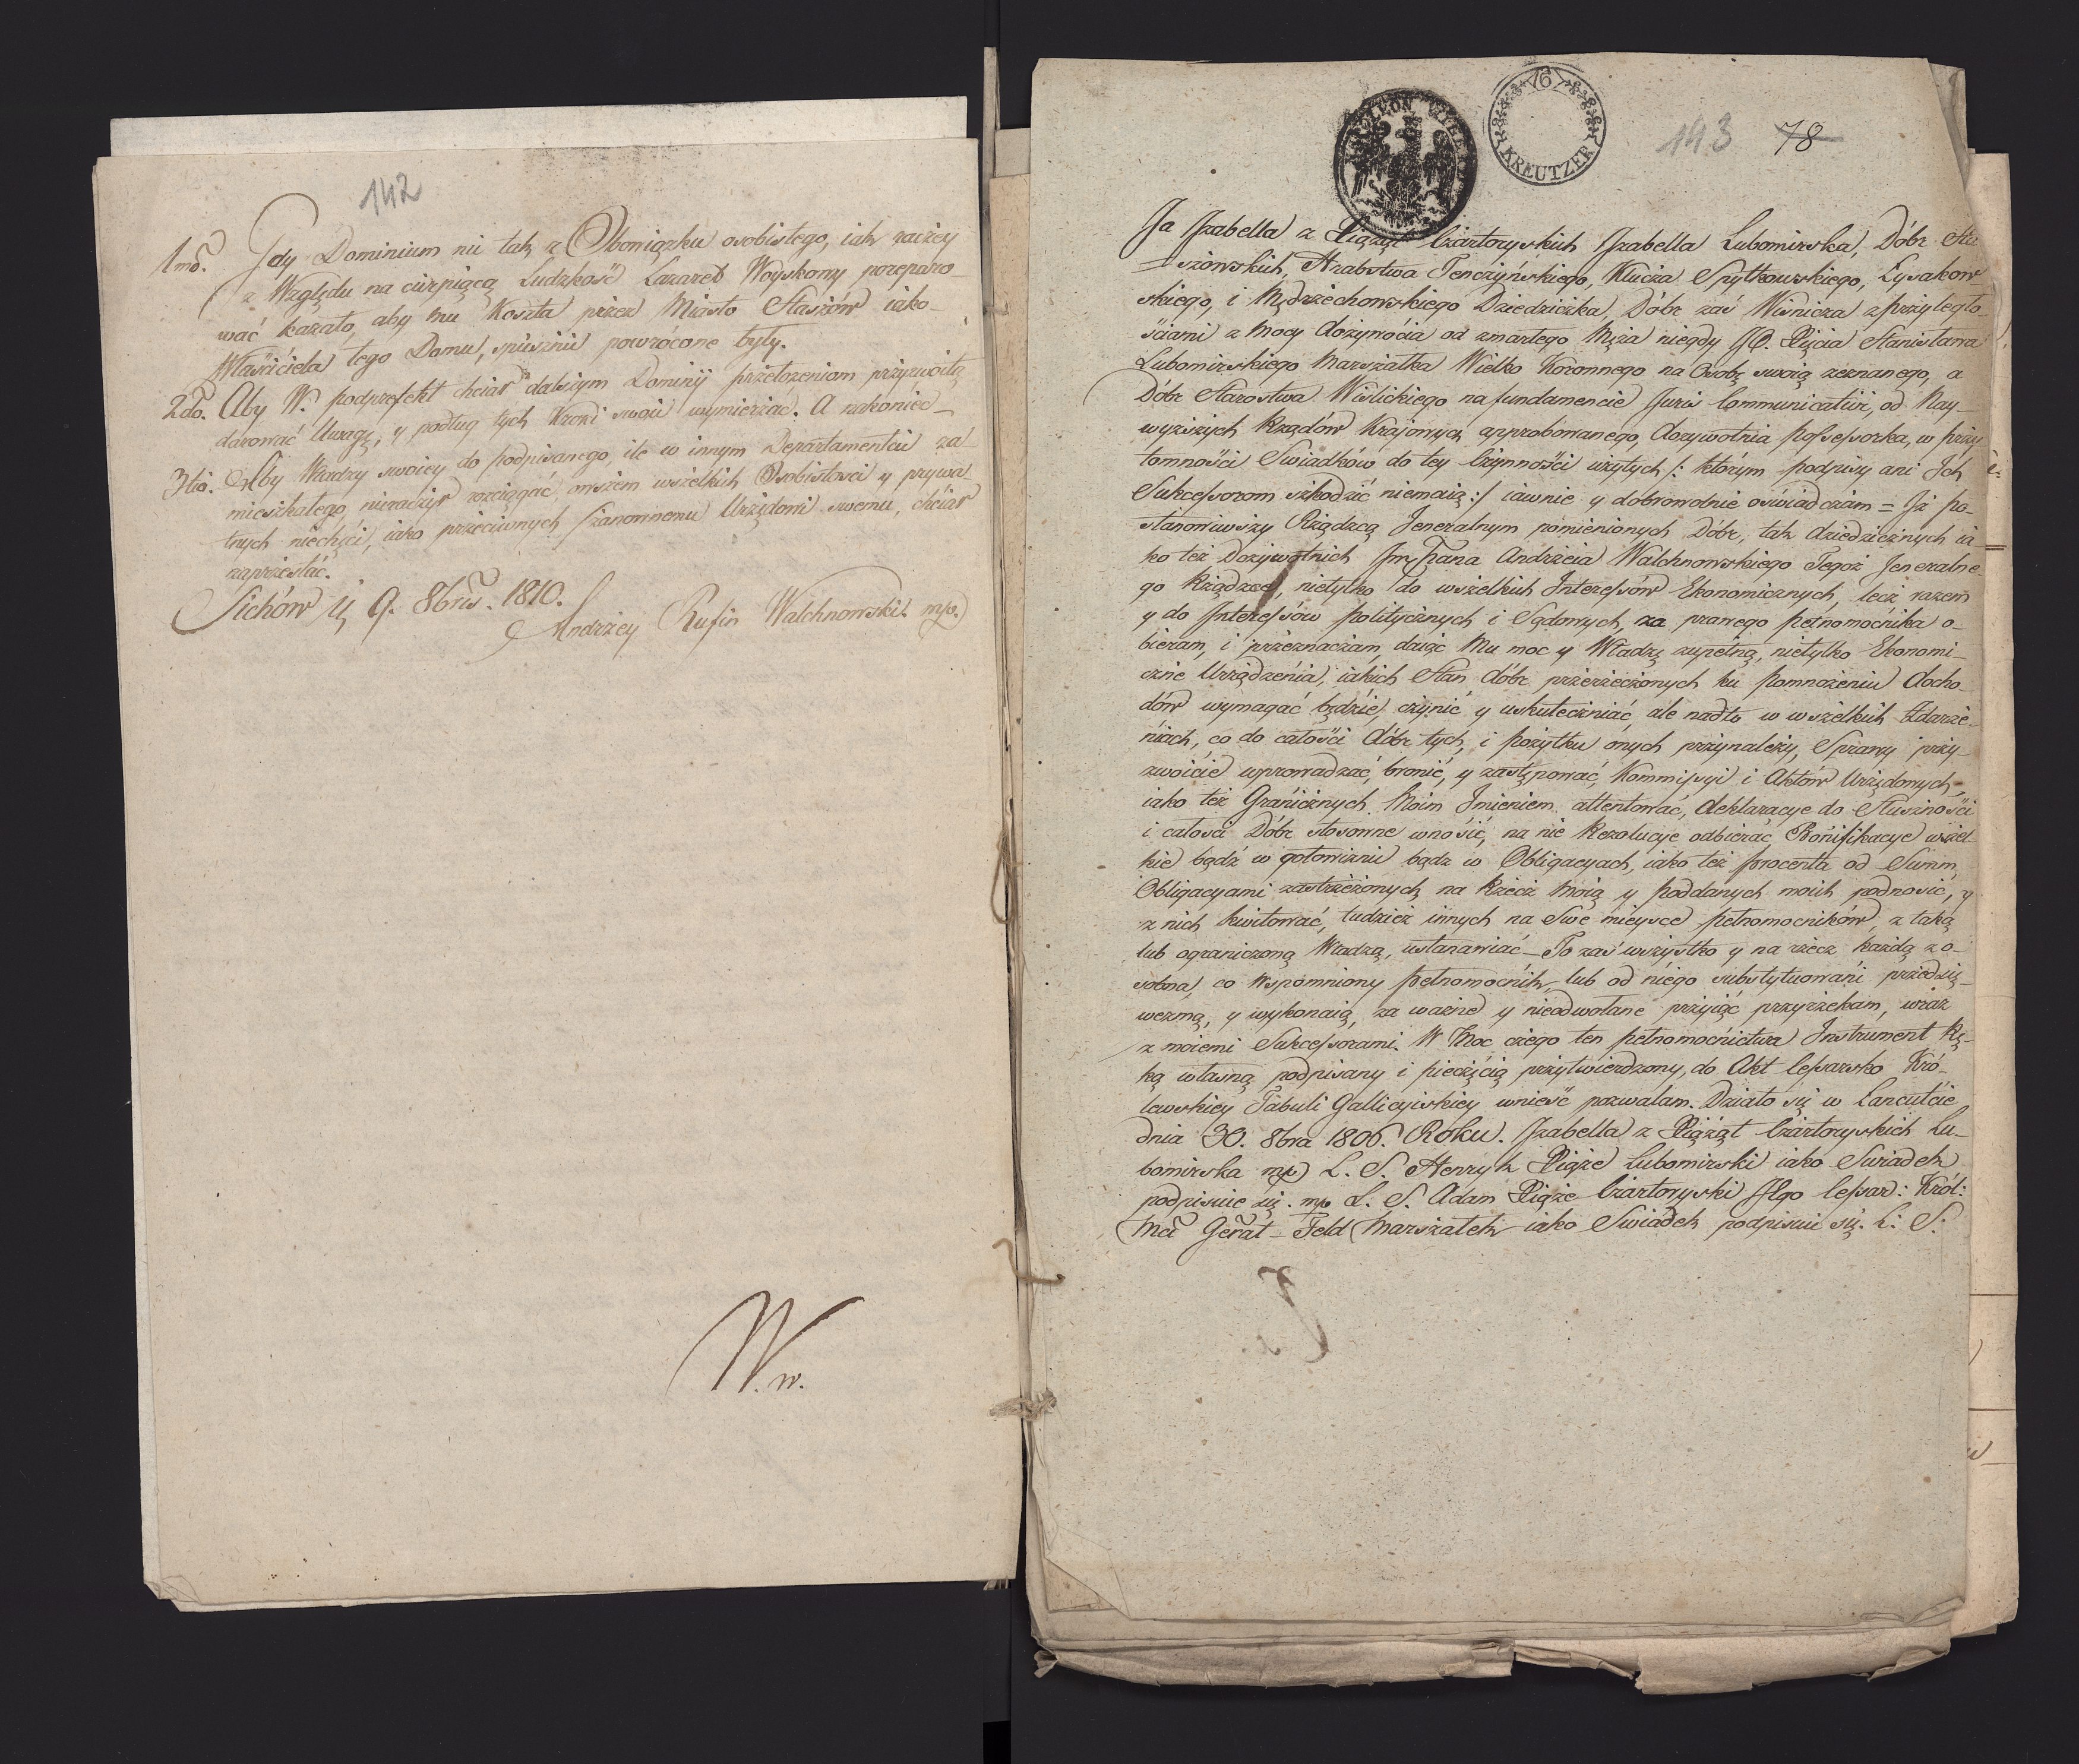 142
1mo. Gdy Dominium nie tak z Obowiązku osobistego, iak raczey
z Względu na cierpiącą Ludzkość Lazaret Woyskowy poreparo-
wać kazało, aby mu Koszta przez Miasto Staszów iako
Właściciela tego Domu, spiesznie powrócone były.
2do. Aby W. podprefekt chciał dalszym Dominij przełożeniom przyzwoitą
darować Uwagę, y podług tych Kroki swoie wymierzać. A nakoniec
3tio. Ażby Władzy swoiey do podpisanego, ile w innym Departamencie za-
mieszkałego, nieraczył rozciągać, owszem wszelkich Osobistości y prywa-
tnych niechęci, iako przeciwnych szanownemu Urzędowi swemu, chciał
zaprzestać.
Sichów d. 9. 8bris. 1810.
Andrzey Rufin Walchnowski. mp.
W. w.
KREUTZER
143 78
Ja Jzabella z Xiążąt Czartoryskich Jzabella Lubomirska, Dóbr Sta-
szowskich, Hrabstwa Tenczyńskiego, Klucza Spytkowskiego, Łysakow-
skiego, i Mędrzechowskiego Dziedziczka, Dóbr zaś Wiśnicza z przyległo-
ściami z mocy dożywocia od zmarłego Męża niegdy JO. Xięcia Stanisława
Lubomirskiego Marszałka Wielko Koronnego na Osobę swoią zeznanego, a
Dóbr Starostwa Wiślickiego na fundamencie Juris Communicativi, od Nay-
wyższych Rządów Krajowych approbowanego, dożywotnia possessorka, w przy-
tomności Swiadków do tey Czynności użytych /: którym podpisy ani Jch
Sukcessorom szkodzić niemaią :/ iawnie y dobrowolnie oświadczam = Jż po-
stanowiwszy Rządzcą Jeneralnym pomienionych Dóbr, tak dziedzicznych ia-
ko też Dożywotnich Jmć Pana Andrzeia Walchnowskiego Tegoż Jeneralne-
go Rządzcę, nietylko do wszelkich Interessów Ekonomicznych, lecz razem
y do Interessów politycznych i Sądowych, za prawego pełnomocnika o-
bieram, i przeznaczam, daiąc Mu moc y Władzę zupełną, nietylko Ekonomi-
czne Urządzenia, iakich Stan dóbr przerzeczonych ku pomnożeniu docho-
dów wymagać będzie, czynić y uskuteczniać, ale nadto w wszelkich Zdarze-
niach, co do całości dóbr tych, i pożytku onych przynależy, Sprawy przy-
zwoicie wprowadzać, bronić, y zastępować, Kommissyi i Aktów Urzędowych,
iako też Granicznych Moim Jmieniem attentować, deklaracye do Słuszności
i całości Dóbr stosowne wnosić, na nie Rezolucye odbierać, Bonifikacye wszel-
kie bądź w gotowiznie bądz w Obligacyach, iako też procenta od Summ
Obligacyami zastrzeżonych na Rzecz Moią y poddanych moich podnosić, y
z nich kwitować, tudzież innych na Swe mieysce pełnomocników, z taką
lub ograniczoną Władzą, ustanawiać – To zaś wszystko y na rzecz każdą z o-
sobna, co wspomniony pełnomocnik, lub od niego substytuowani przedsię-
wezmą, y wykonaią, za ważne y nieodwołane przyiąć przyrzekam, wraz
z moiemi Sukcessorami. W Moc czego ten pełnomocnictwa Jnstrument Rę-
ką własną podpisany i pieczęcią przytwierdzony, do Akt Cesarsko Kró-
lewskiey Tabuli Gallicyiskiey wnieść pozwalam. Działo się w Łancutcie
dnia 30. 8bra 1806. Roku. Jzabella z Xiążąt Czartoryskich Lu-
bomirska mp L. S. Henryk Xiąże Lubomirski iako Swiadek
podpisuie się. mp L: S. Adam Xiąże Czartoryski JEgo Cesar: Król:
Mci Gerał – Feld Marszałek iako Swiadek podpisuie się. L: S: